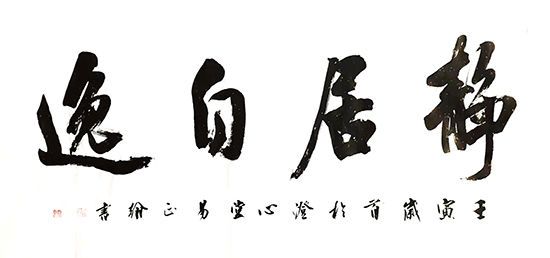 静居自逸
壬寅岁首於澄心堂易正翰书